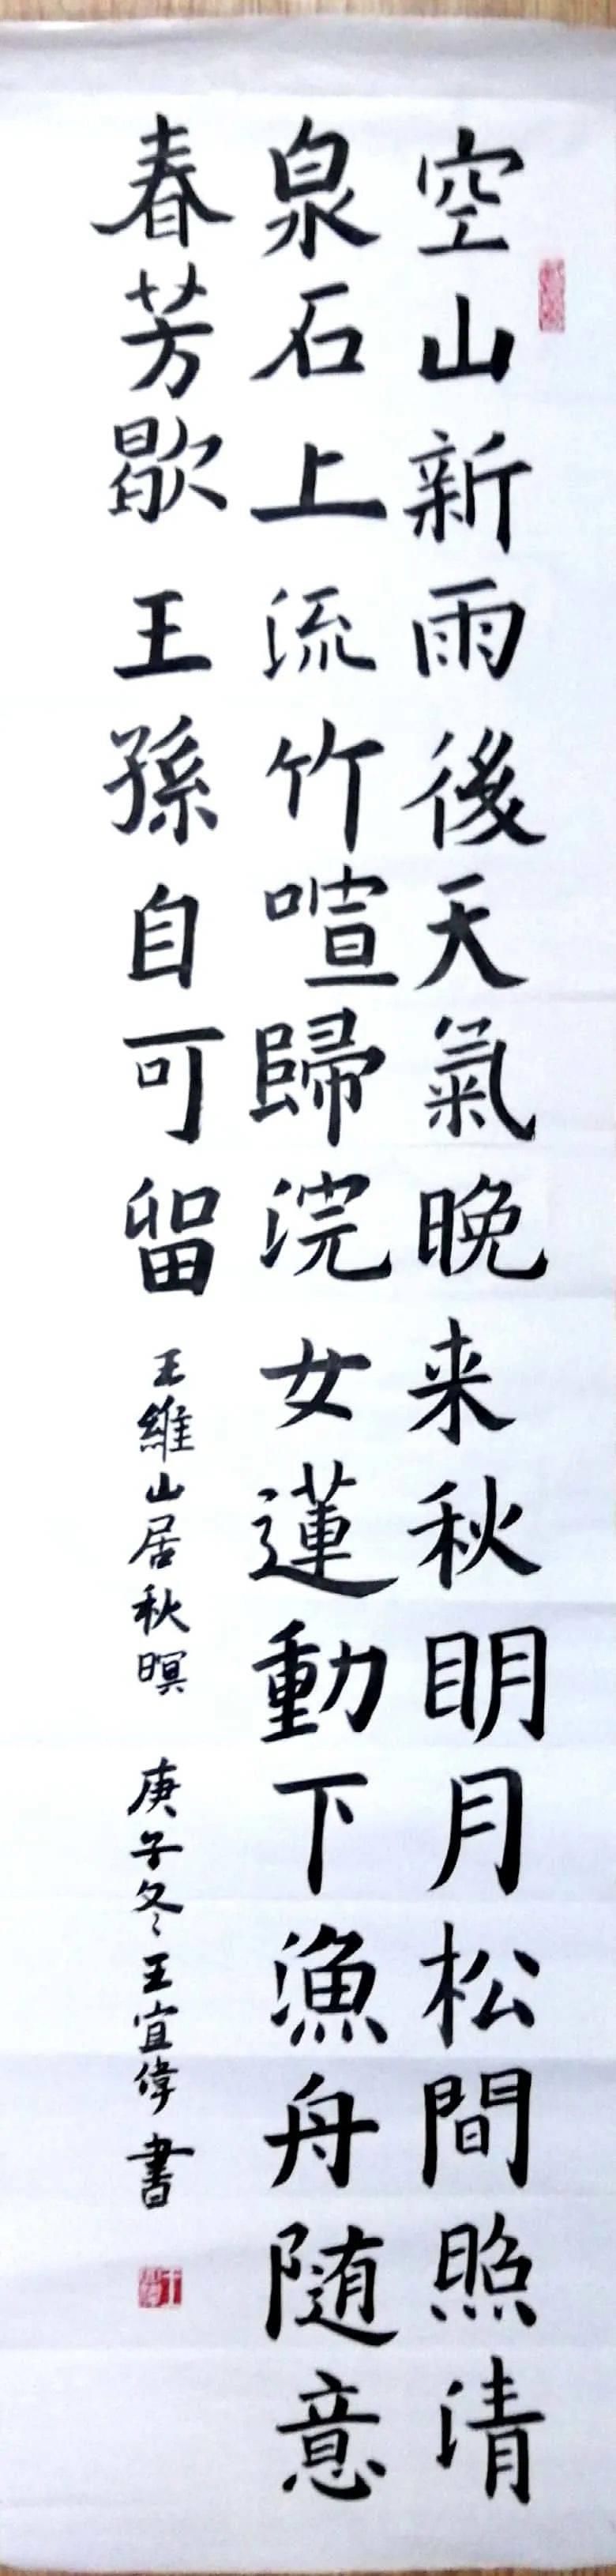 空山新雨後天氣晚来秋明月松間照清
泉石上流竹喧歸浣女蓮動下漁舟随意
春芳歇王孫自可留
王維山居秋暝 庚子冬王宜偉書